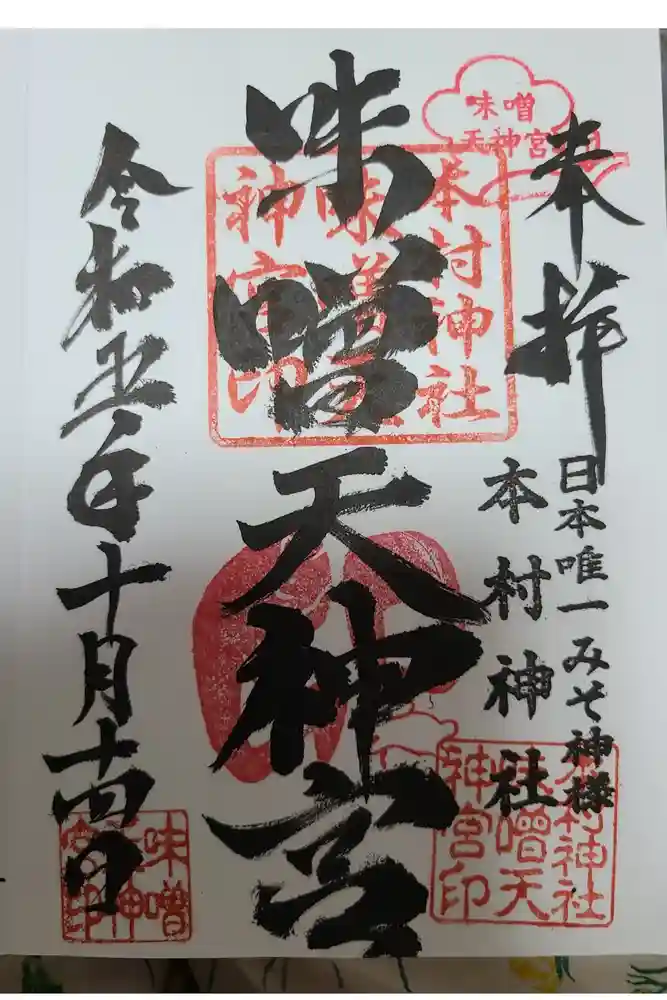 奉拝
日本唯一みそ神様
本村神社
味噌天神宮
令和五年十月十四日
味噌
天神宮
本村神社
味噌天
神宮印
本村神社
味噌天
神宮印
味噌
天神
宮印